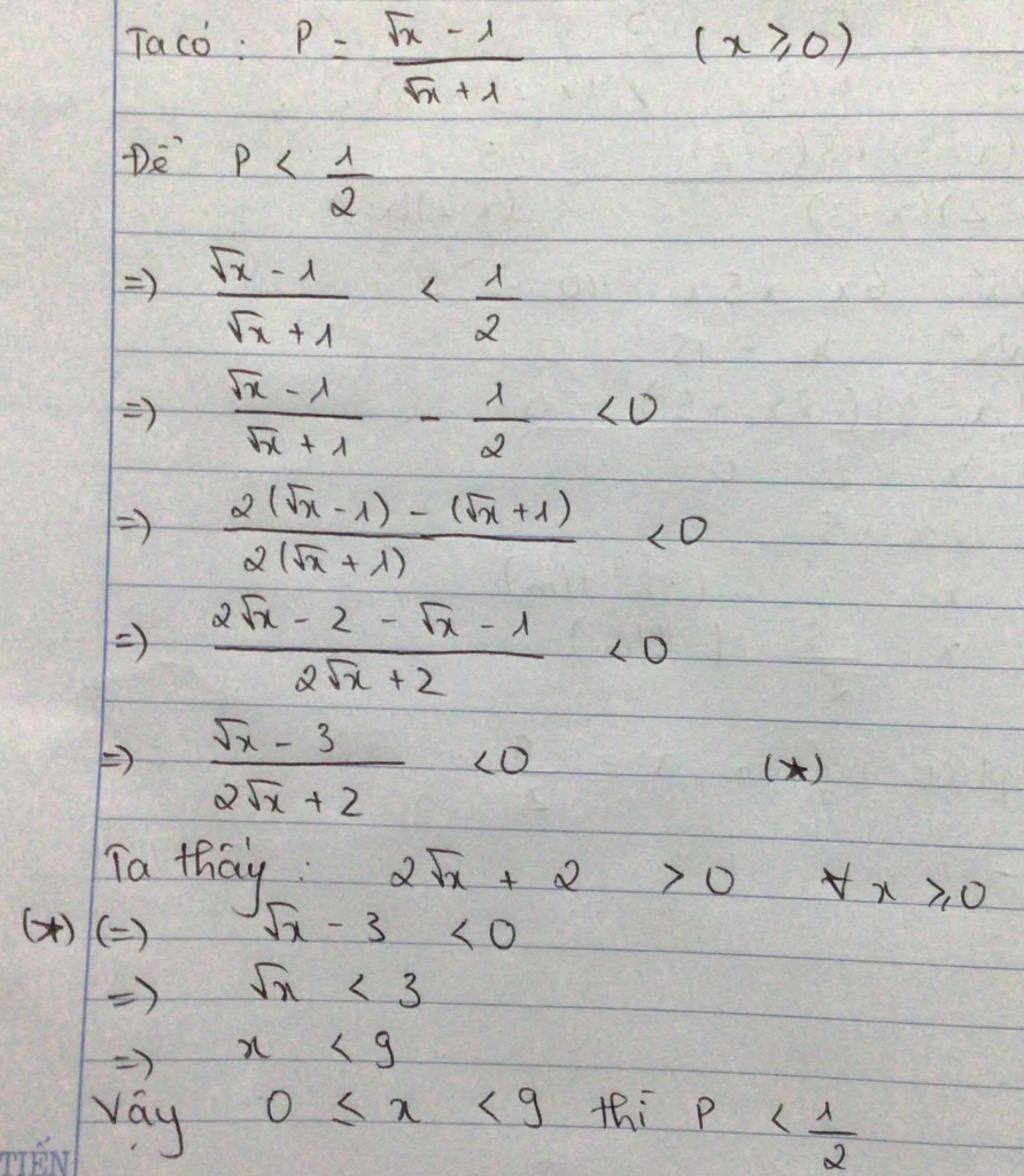 Ta có : P = (√x - 1)/(√x + 1) (x ⩾ 0)
Để P < 1/2
=> (√x - 1)/(√x + 1) < 1/2
=> (√x - 1)/(√x + 1) - 1/2 < 0
=> (2(√x - 1) - (√x + 1))/(2(√x + 1)) < 0
=> (2√x - 2 - √x - 1)/(2√x + 2) < 0
=> (√x - 3)/(2√x + 2) < 0 (★)
Ta thấy : 2√x + 2 > 0 ∀ x ⩾ 0
(★) (=) √x - 3 < 0
=> √x < 3
=> x < 9
Vậy 0 ≤ x < 9 thì P < 1/2
TIẾN